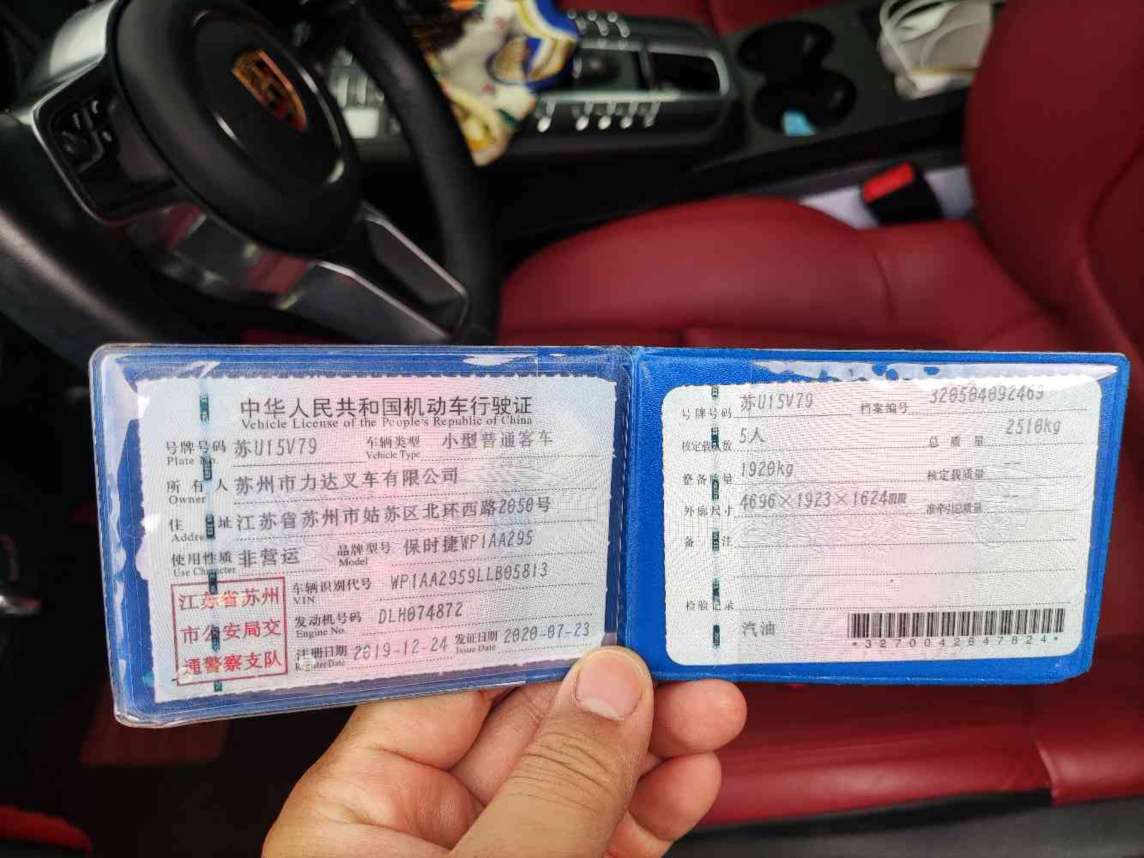 中华人民共和国机动车行驶证
Vehicle License of the People's Republic of China
号牌号码 苏U15V79 车辆类型 小型普通客车
Plate No. Vehicle Type
所有人 苏州市力达叉车有限公司
Owner
住址 江苏省苏州市姑苏区北环西路2050号
Address
使用性质 非营运 品牌型号 保时捷WP1AA295
Use Character Model
江苏省苏州
市公安局交
通警察支队
车辆识别代号 WP1AA2959LLB05813
VIN
发动机号码 DLH074872
Engine No.
注册日期 2019-12-24 发证日期 2020-07-23
Register Date Issue Date
号牌号码 苏U15V79 档案编号 320504092469
核定载人数 5人 总质量 2510kg
整备质量 1920kg 核定载质量 --
外廓尺寸 4696×1923×1624mm 准牵引总质量 --
备注
检验记录
汽油
*3270042647824*